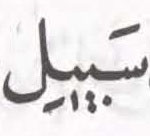 سَبِيلِ ١٤٠